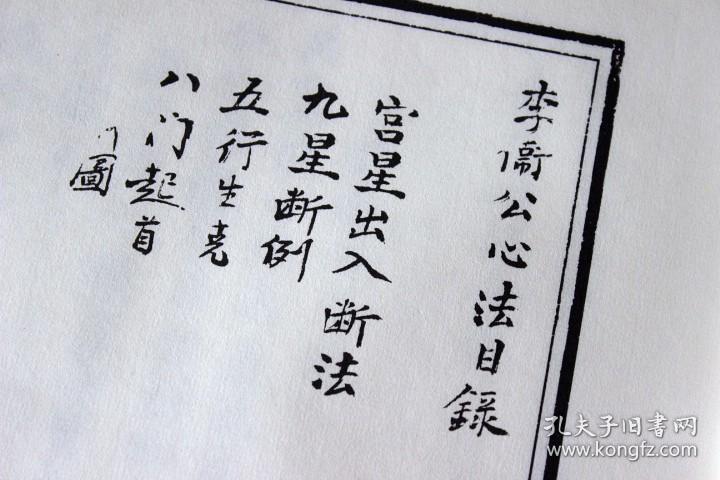 李衛公心法目錄
宫星出入断法
九星断例
五行生克
八门起首
门圖
孔夫子旧书网
www.kongfz.com